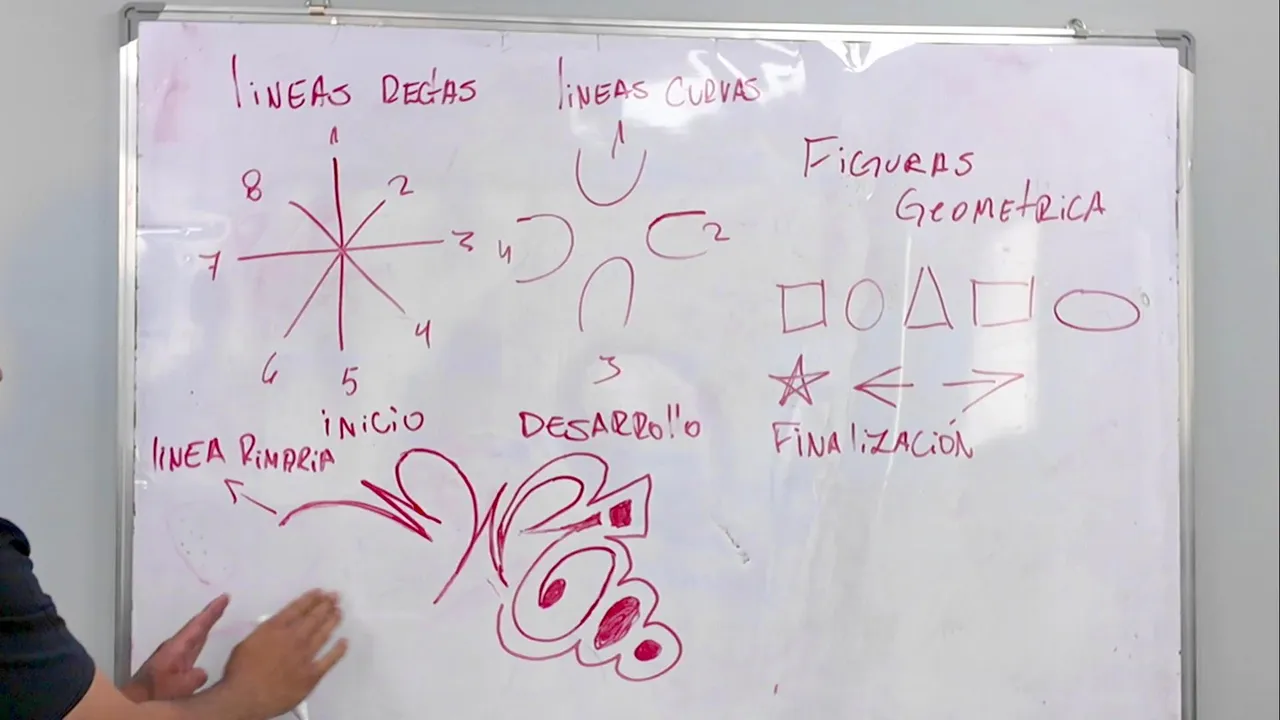 LINEAS RECTAS
1
2
3
4
5
6
7
8
LINEAS CURVAS
1
2
3
4
FIGURAS
GEOMETRICA
INICIO
LINEA PIMARIA
DESARROLLO
FINALIZACIÓN